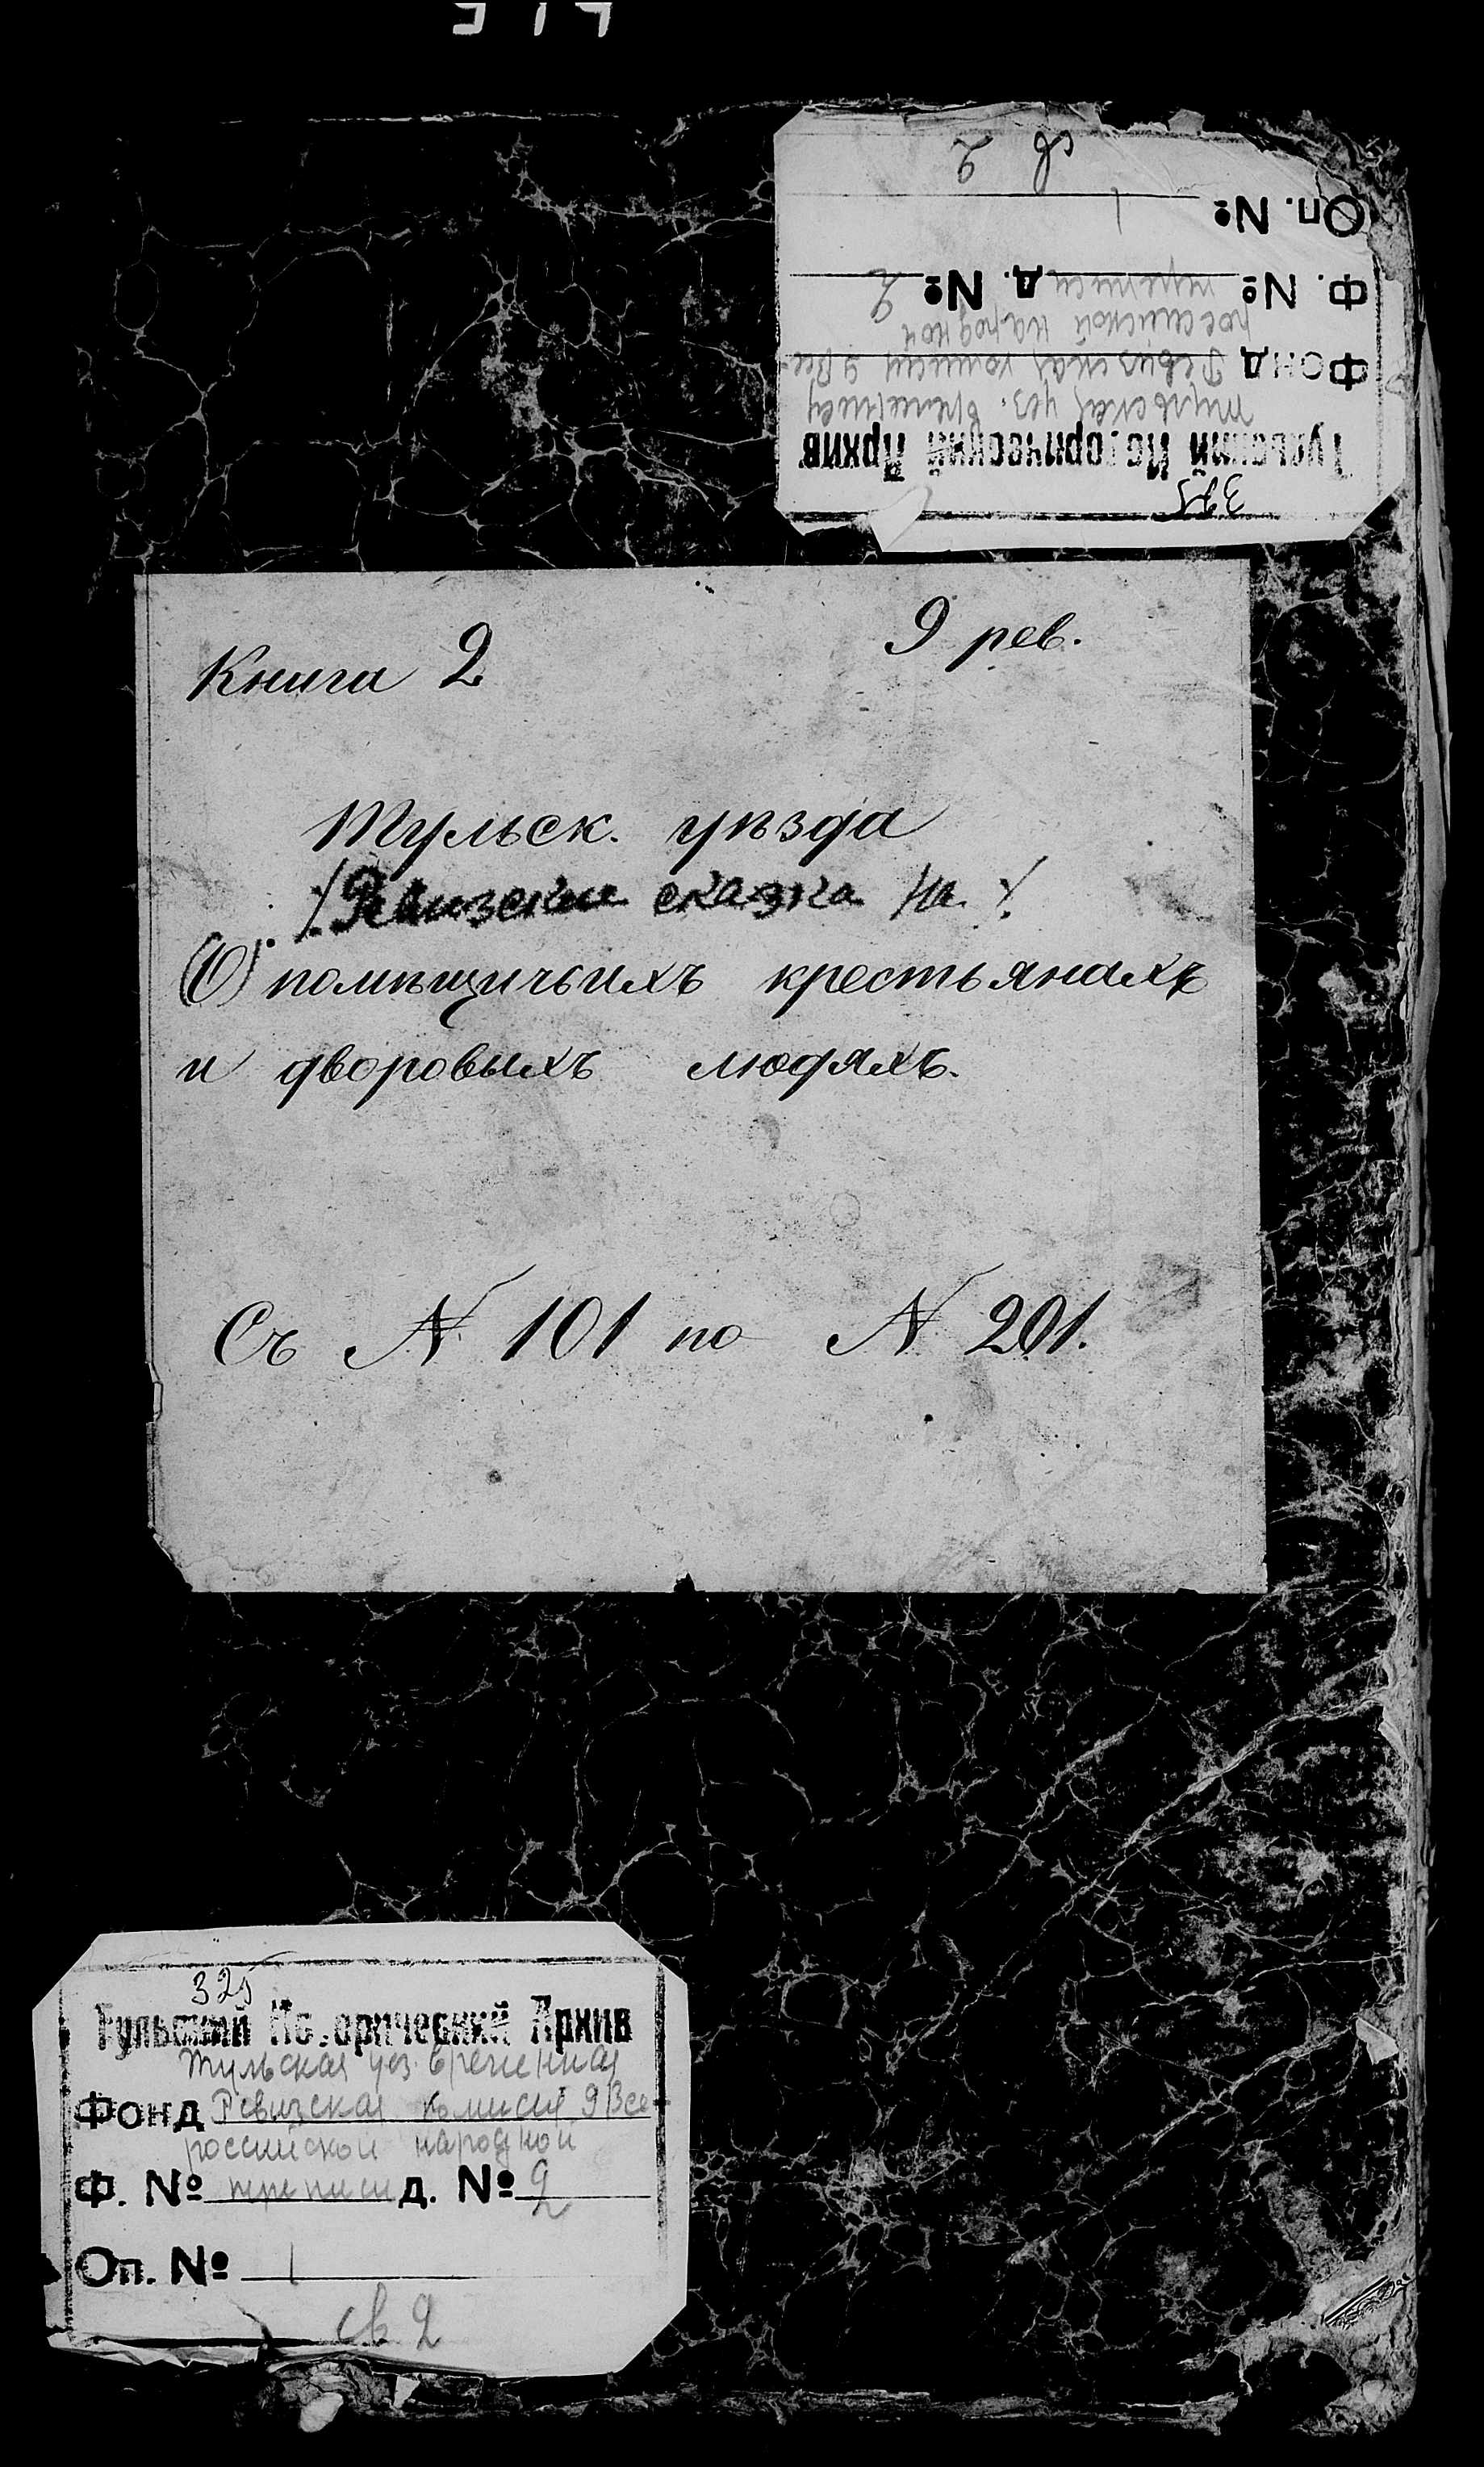 325
Тульский Исторический Архив
Тульская уез. временная
Фонд Ревизская комисия 9 Все-
российской народной
Ф. № переписи д. № 2
Оп. № 1
св 2
Книга 2
9 рев.
Тульск. уѣзда
Ревизские сказка на
(О) помѣщичьихъ крестьянахъ
и дворовыхъ людяхъ.
Съ N 101 по N 201.
325
Тульский Исторический Архив
Тульская уез. временная
Фонд Ревизская комисия 9 Все-
российской народной
Ф. № переписи д. № 2
Оп. № 1
св. 2